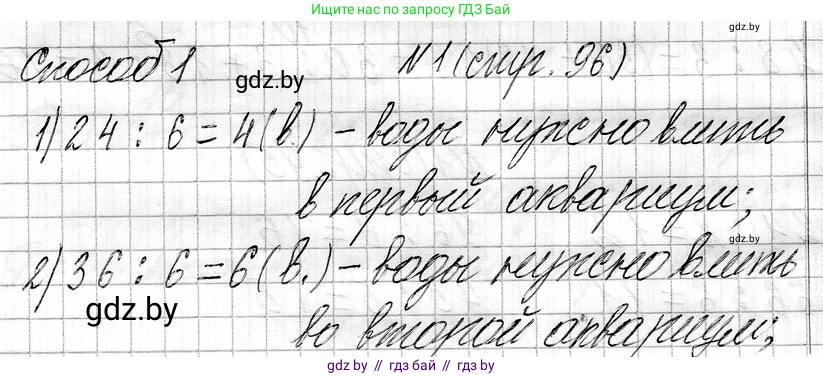 Ищите нас по запросу ГДЗ Бай
gdz.by
Способ 1 №1 (стр. 96)
gdz.by
1) 24 : 6 = 4 (в.) – воды нужно влить
в первый аквариум;
gdz.by
2) 36 : 6 = 6 (в.) – воды нужно влить
gdz.by
во второй аквариум;
gdz.by // гдз бай // gdz.by